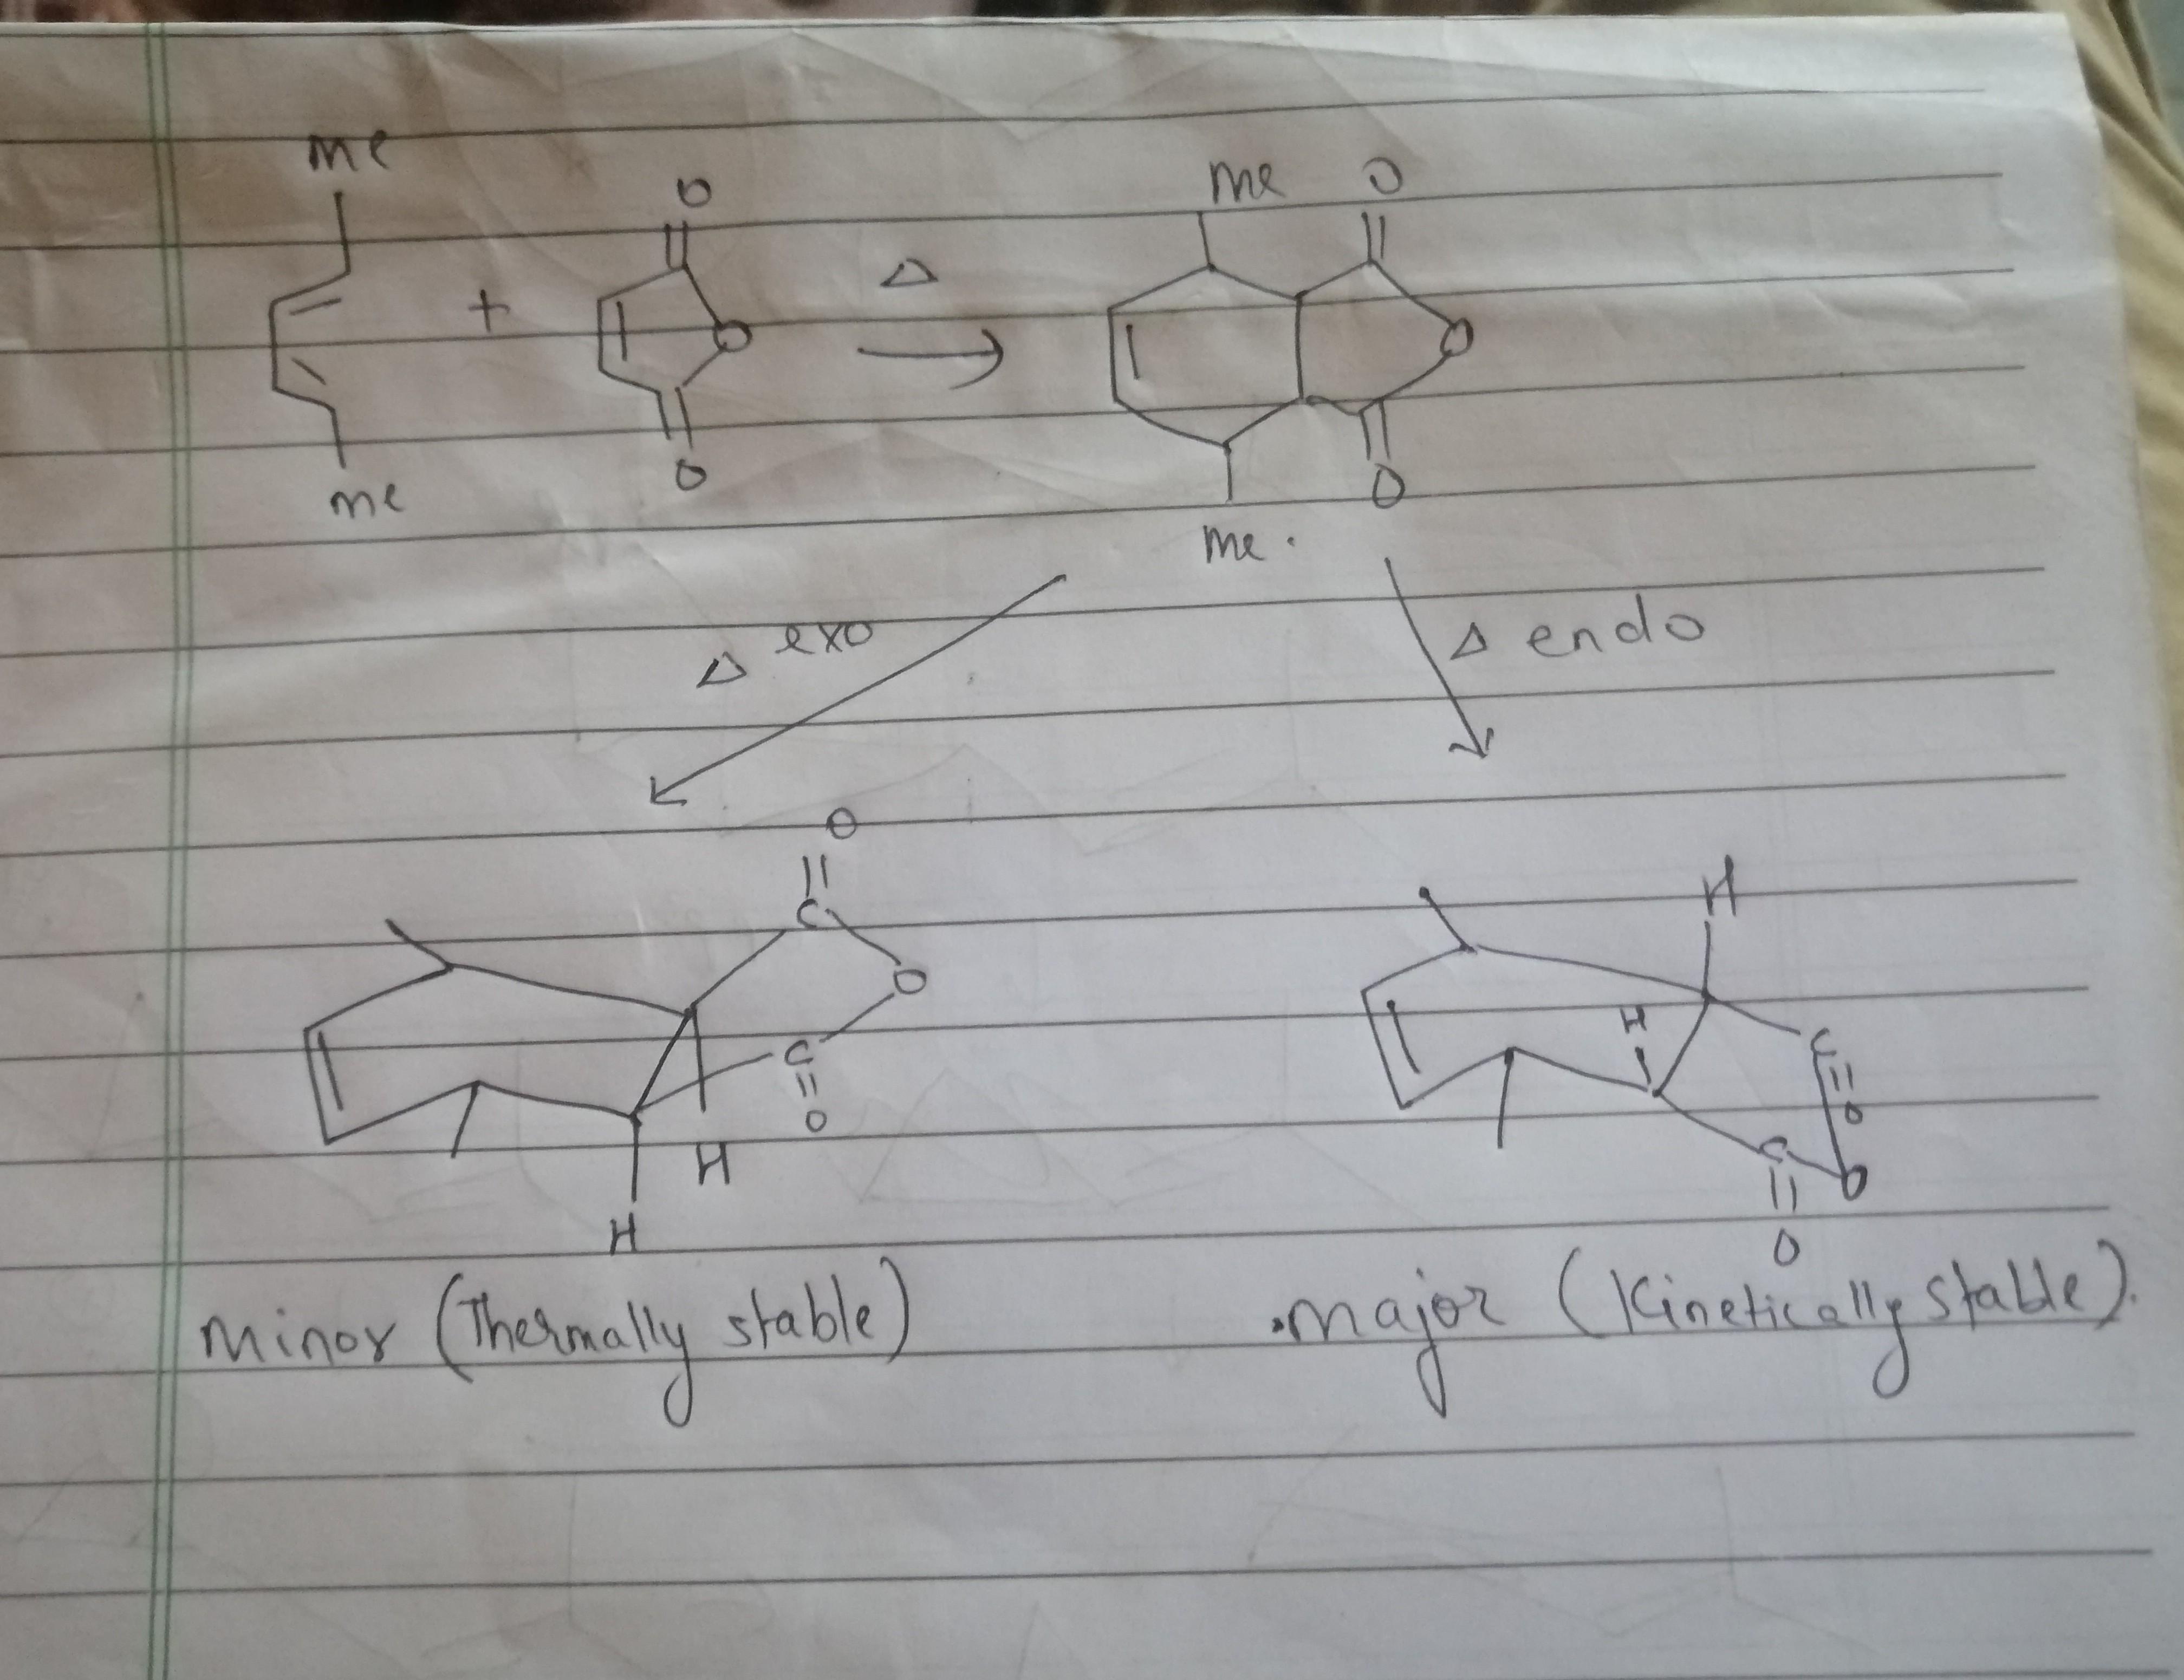 me
O
me O
+
O
Δ
→
O
O
me
O
me.
Δ exo
Δ endo
O
C
H
O
H
C
C
O
O
H
C
O
H
O
minor (Thermally stable)
.major (Kinetically stable).